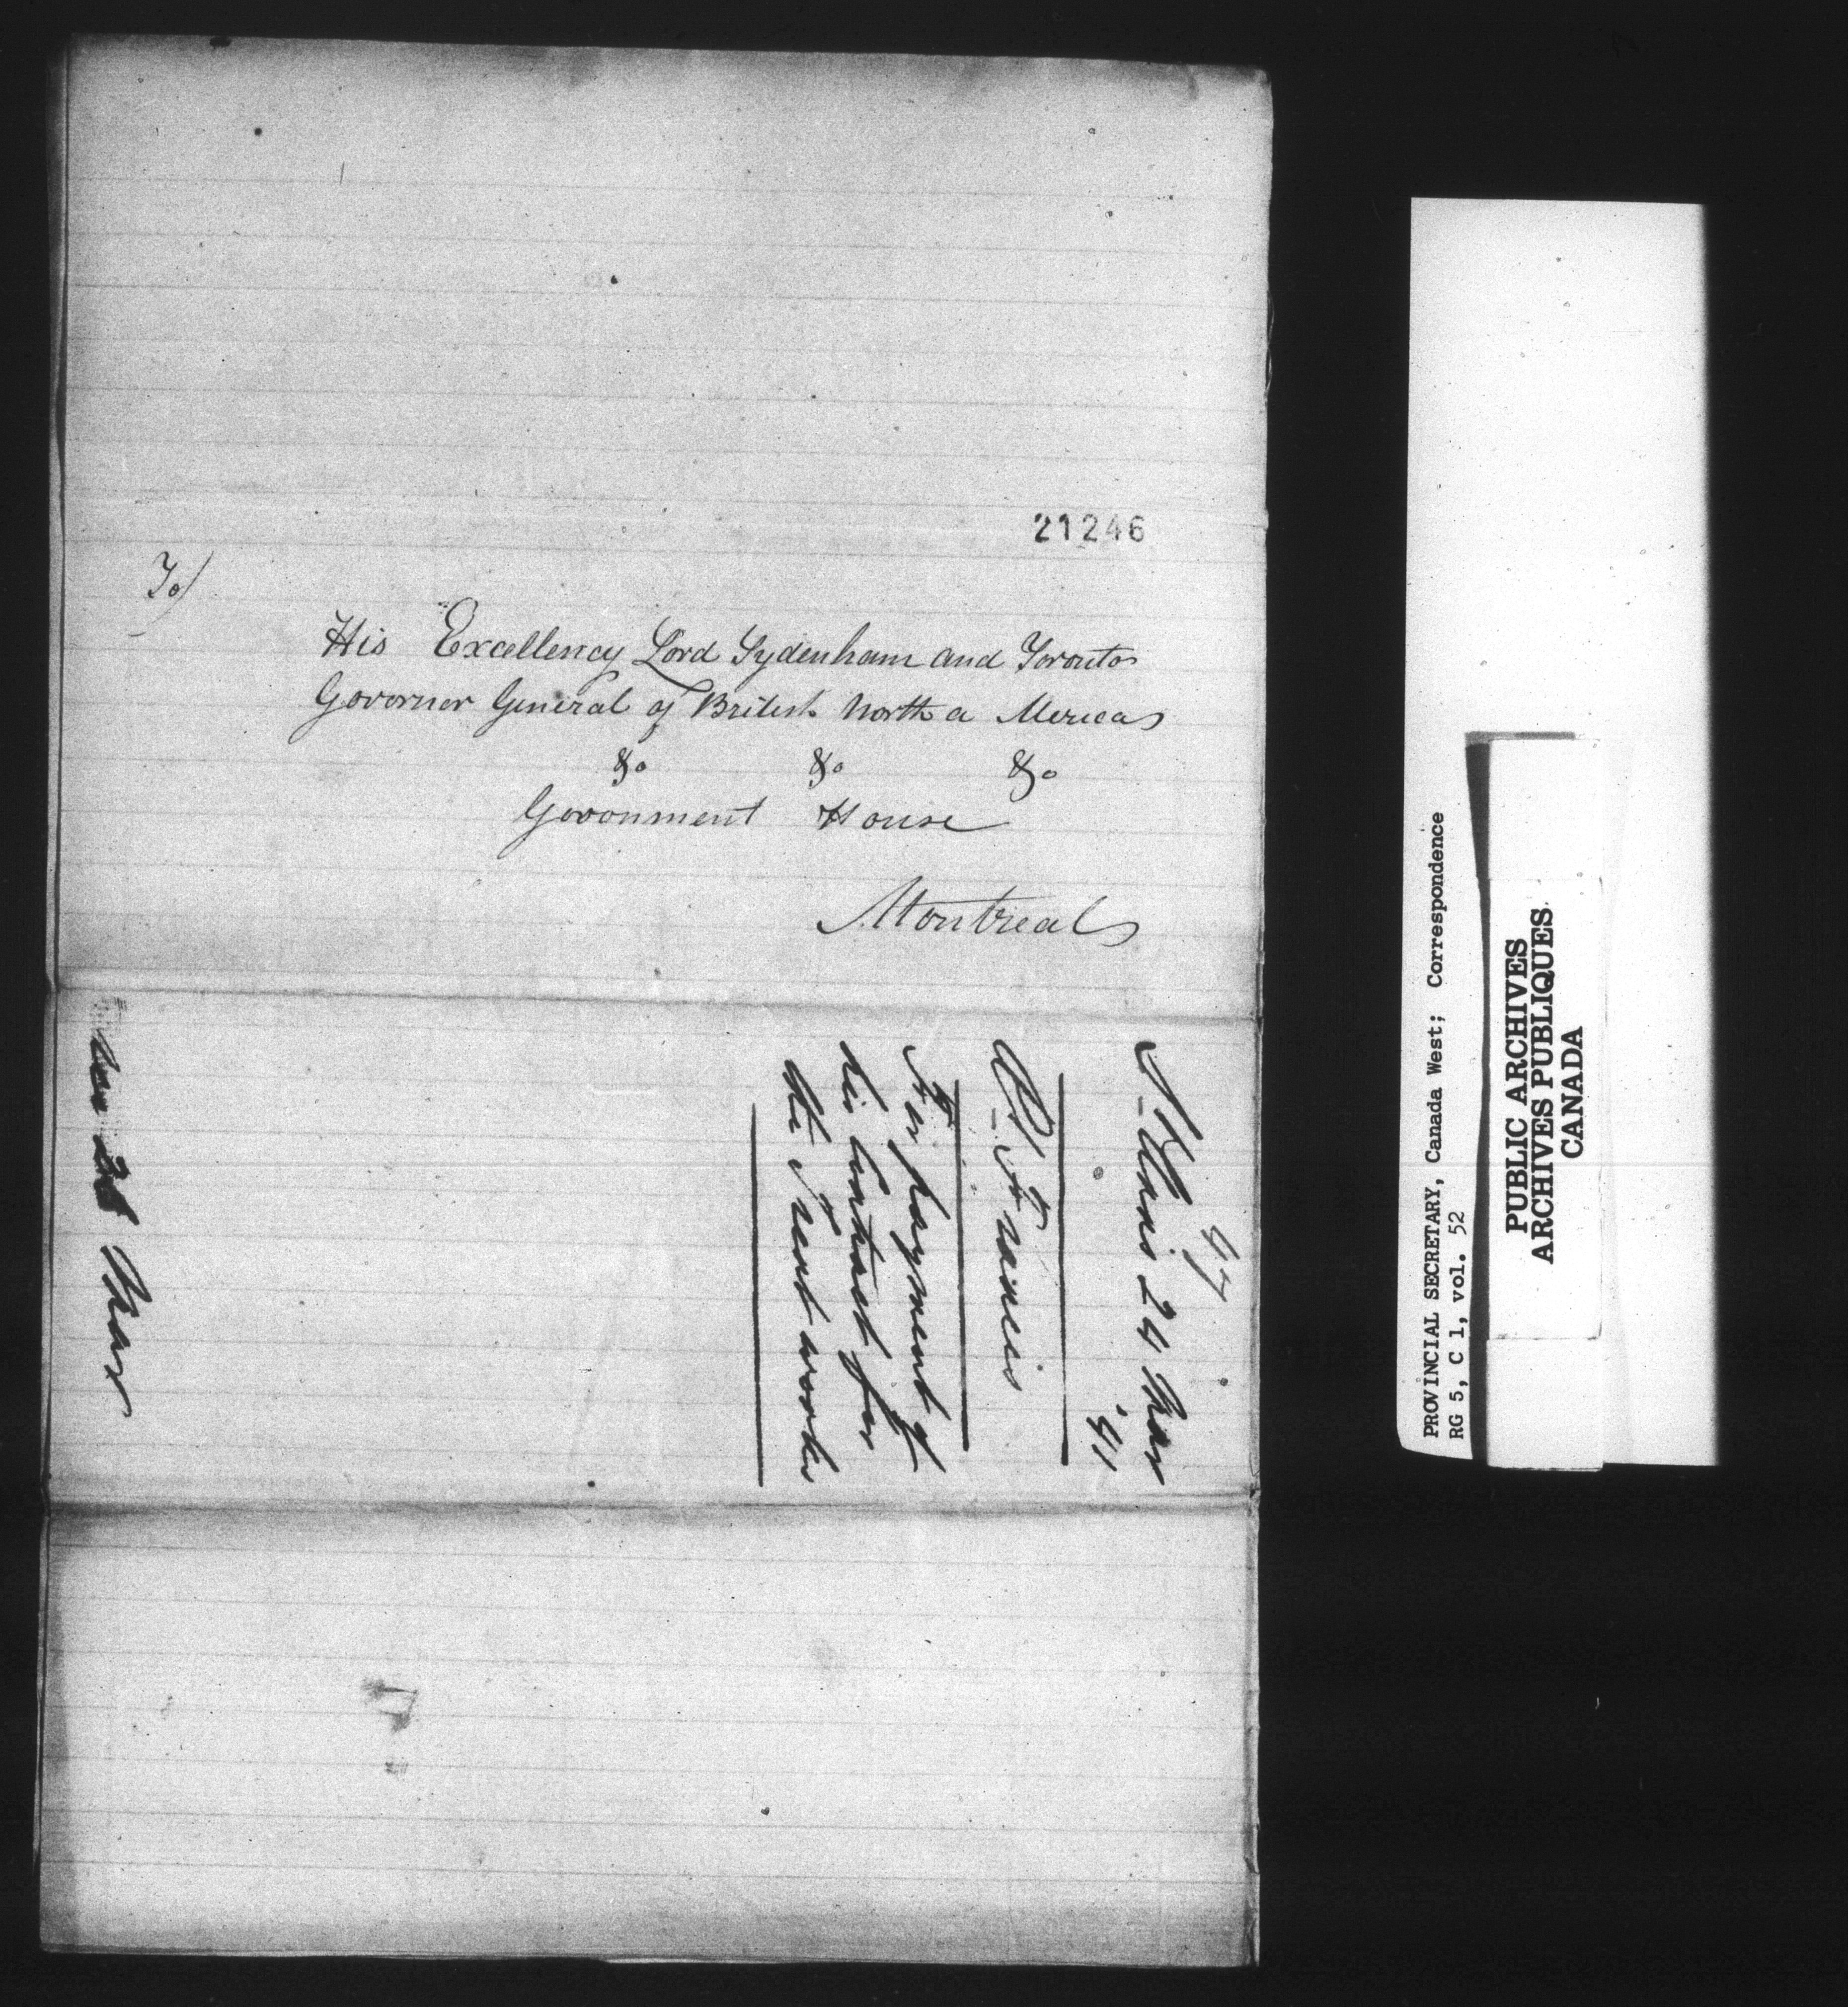 21246
To/
His Excellency Lord Sydenham and Toronto
Govornor General of British North a Merica
&c &c &c
Govonment House
Montreal
47
24 Mar
'41
Francis
For payment of
his Contract for
the Trent works
Mar
PROVINCIAL SECRETARY, Canada West; Correspondence
RG 5, C 1, vol. 52
PUBLIC ARCHIVES
ARCHIVES PUBLIQUES
CANADA